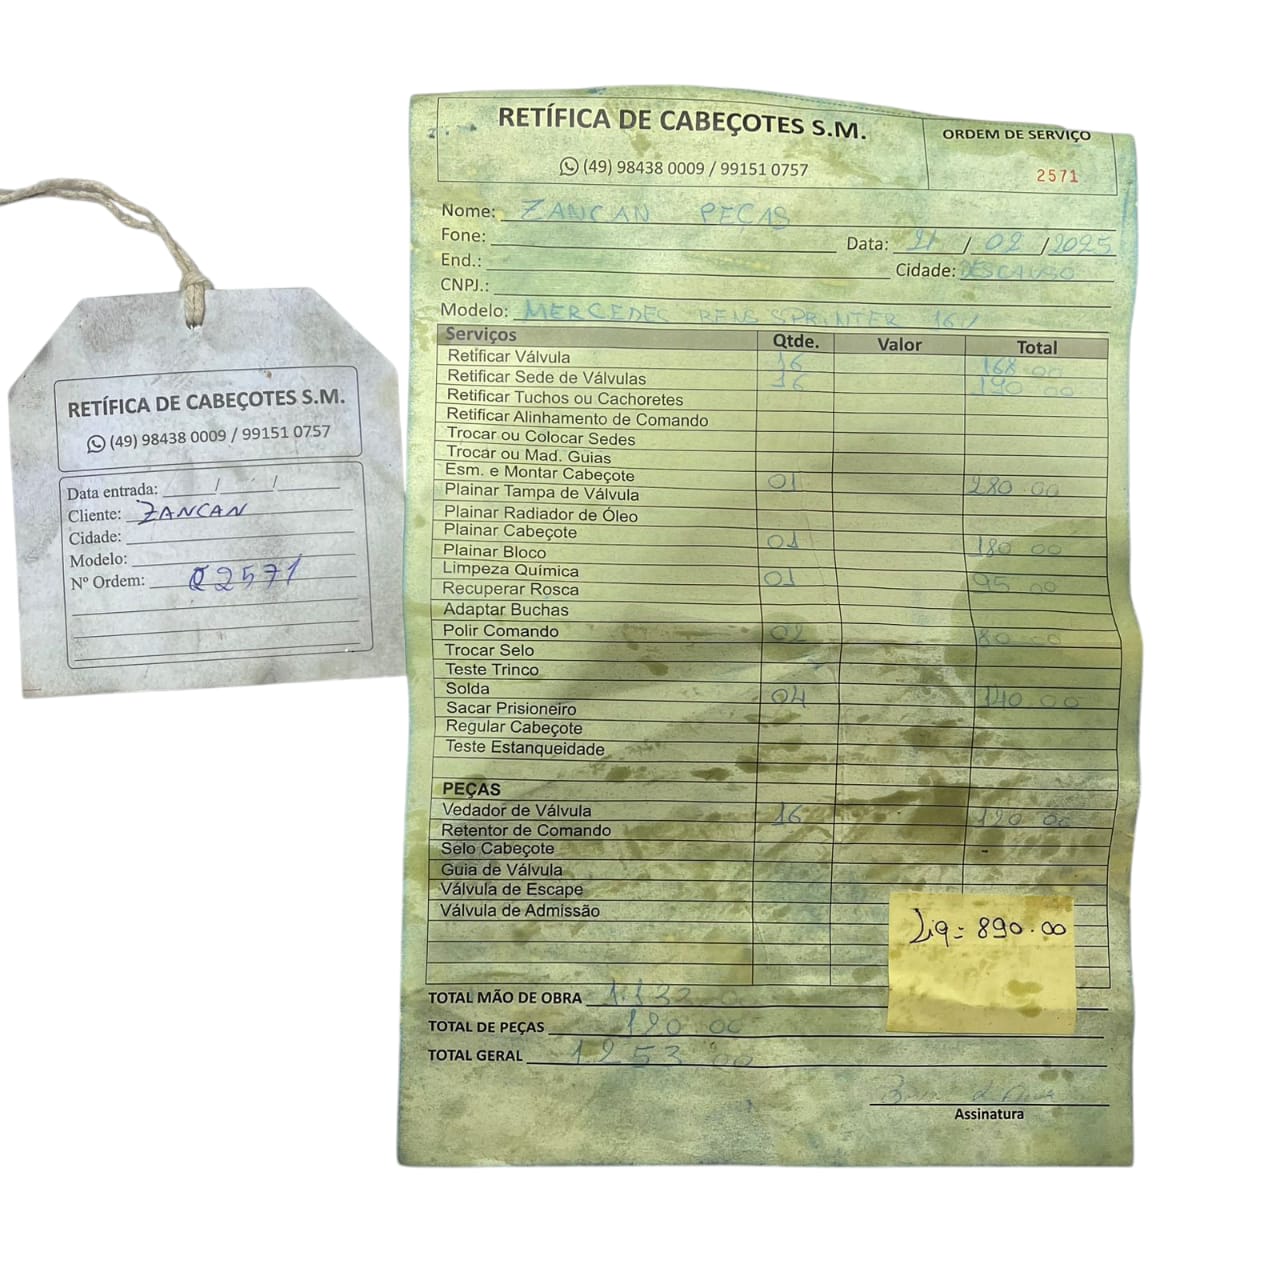 RETÍFICA DE CABEÇOTES S.M.
(49) 98438 0009 / 99151 0757
Data entrada: ___/___/___
Cliente: ZANCAN
Cidade:
Modelo:
Nº Ordem: 2571
RETÍFICA DE CABEÇOTES S.M.
(49) 98438 0009 / 99151 0757
ORDEM DE SERVIÇO
2571
Nome: ZANCAN PEÇAS
Fone: Data: 21 / 02 / 2025
End.: Cidade: DESCANSO
CNPJ.:
Modelo: MERCEDEC BENS SPRINTER 16V
Serviços Qtde. Valor Total
Retificar Válvula 16 168 00
Retificar Sede de Válvulas 16 190 00
Retificar Tuchos ou Cachoretes
Retificar Alinhamento de Comando
Trocar ou Colocar Sedes
Trocar ou Mad. Guias
Esm. e Montar Cabeçote 01 280.00
Plainar Tampa de Válvula
Plainar Radiador de Óleo
Plainar Cabeçote 01 180 00
Plainar Bloco
Limpeza Química 01 95 00
Recuperar Rosca
Adaptar Buchas
Polir Comando 02 80 00
Trocar Selo
Teste Trinco
Solda 04 140 00
Sacar Prisioneiro
Regular Cabeçote
Teste Estanqueidade
PEÇAS
Vedador de Válvula 16 120 00
Retentor de Comando
Selo Cabeçote
Guia de Válvula
Válvula de Escape
Válvula de Admissão
Liq= 890.00
TOTAL MÃO DE OBRA 1.133
TOTAL DE PEÇAS 120 00
TOTAL GERAL 1253 00
Assinatura